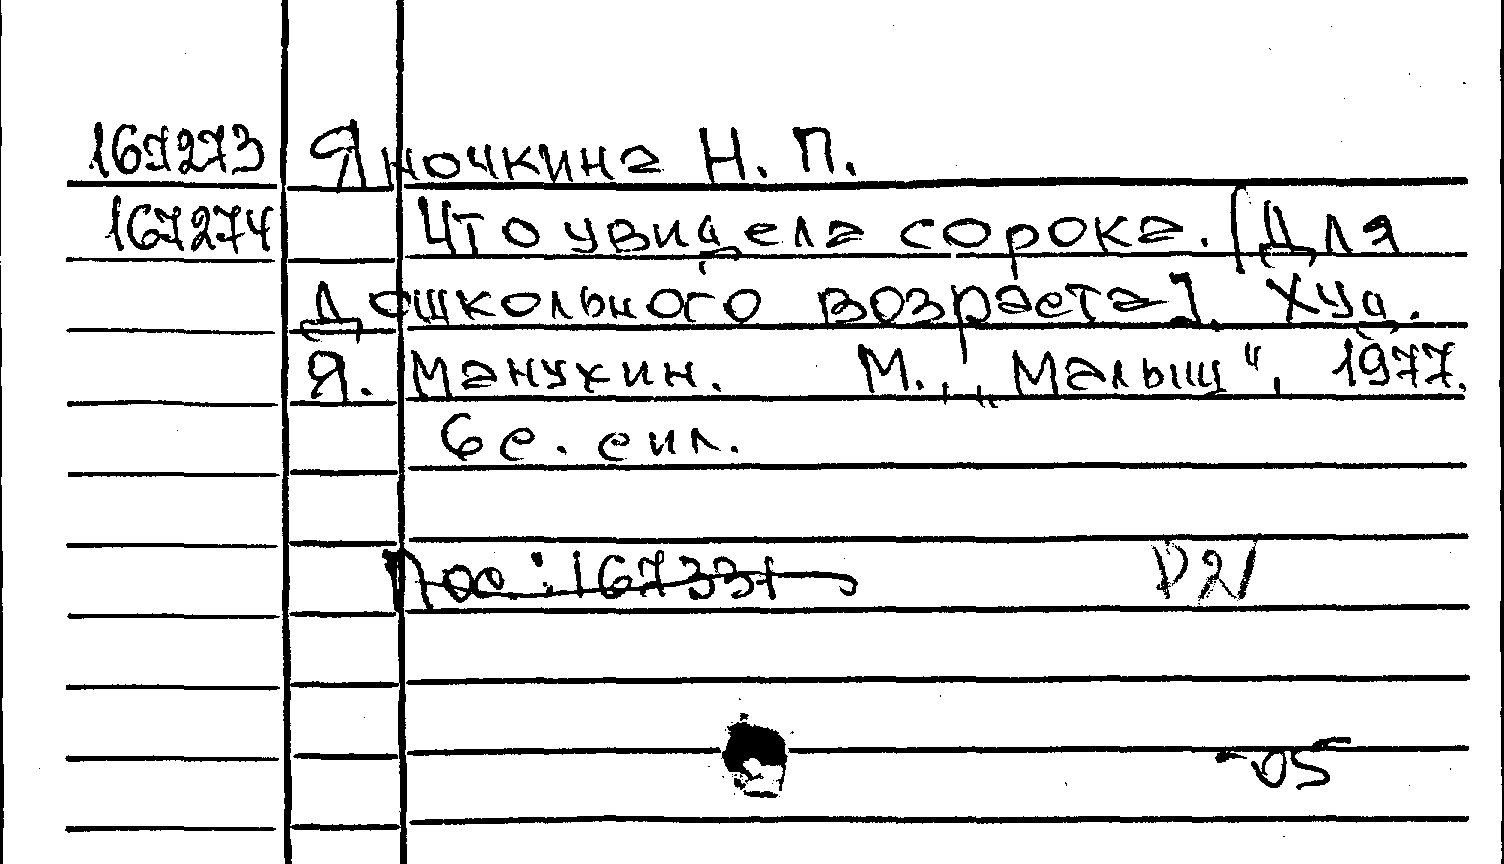 167273 Яночкина Н. П.
167274 Что увидела сорока. [Для
дошкольного возраста]. Худ.
Я. Манухин. М., „Малыш", 1977.
6 с. с ил.
Р2
-05